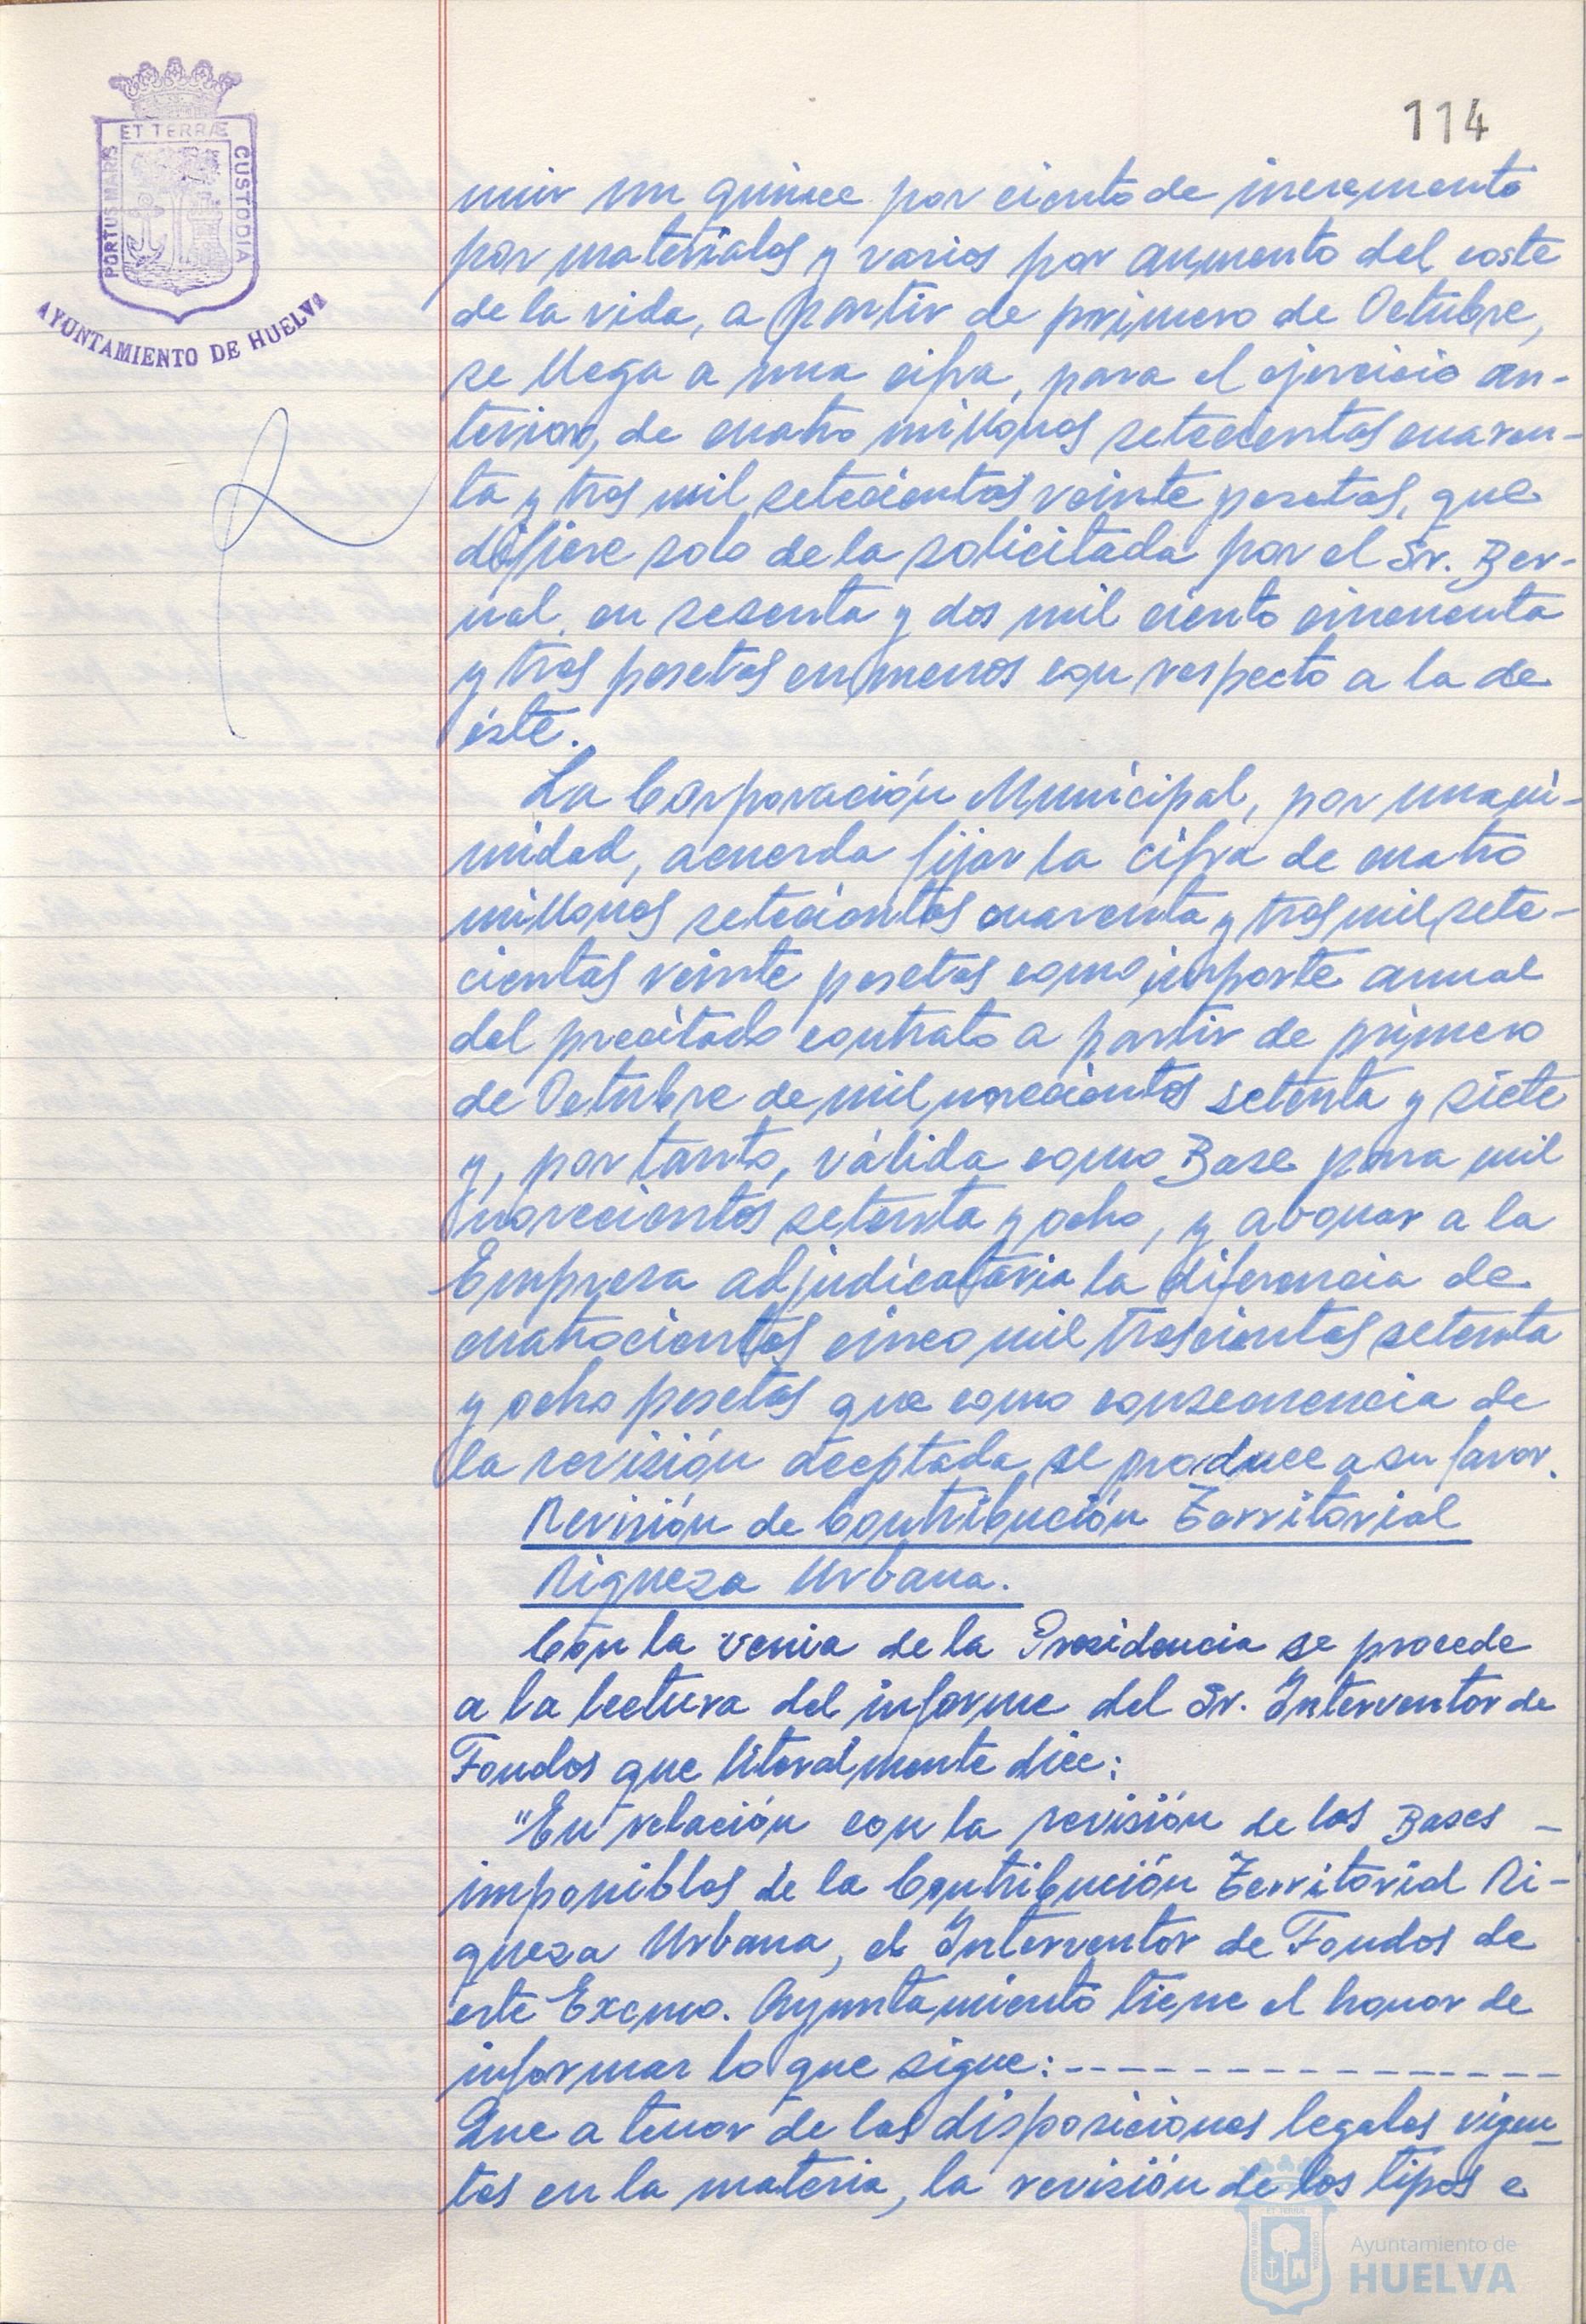 114
ET TERRÆ
PORTUS MARIS
CUSTODIA
AYUNTAMIENTO DE HUELVA
nuir un quince por ciento de incremento
por materiales y varios por aumento del coste
de la vida, a partir de primero de Octubre,
se llega a una cifra, para el ejercicio an-
terior, de cuatro millones setecientas cuaren-
ta y tres mil setecientas veinte pesetas, que
difiere solo de la solicitada por el Sr. Ber-
nal, en sesenta y dos mil ciento cincuenta
y tres pesetas en menos con respecto a la de
éste.
La Corporación Municipal, por unani-
midad, acuerda fijar la cifra de cuatro
millones setecientas cuarenta y tres mil sete-
cientas veinte pesetas como importe anual
del precitado contrato a partir de primero
de Octubre de mil novecientos setenta y siete
y, por tanto, válida como Base para mil
novecientos setenta y ocho, y abonar a la
Empresa adjudicataria la diferencia de
cuatrocientas cinco mil trescientas setenta
y ocho pesetas que como consecuencia de
la revisión aceptada se produce a su favor.
Revisión de Contribución Territorial
Riqueza Urbana.
Con la venia de la Presidencia se procede
a la lectura del informe del Sr. Interventor de
Fondos que literalmente dice:
"En relación con la revisión de las Bases -
imponibles de la Contribución Territorial Ri-
queza Urbana, el Interventor de Fondos de
este Excmo. Ayuntamiento tiene el honor de
informar lo que sigue: ----------------
Que a tenor de las disposiciones legales vigen-
tes en la materia, la revisión de los tipos e
Ayuntamiento de
HUELVA